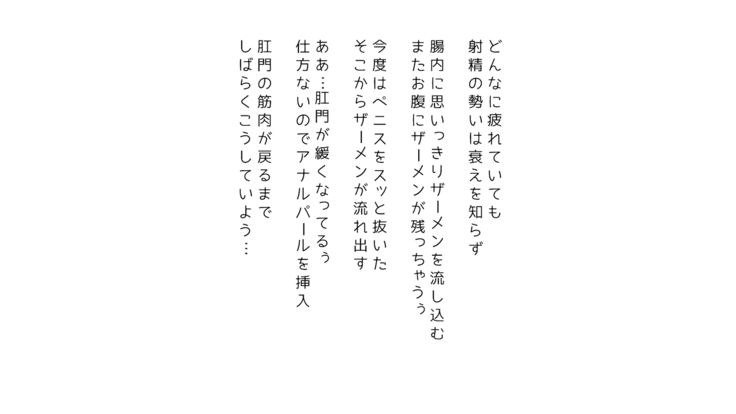 どんなに疲れていても
射精の勢いは衰えを知らず
腸内に思いっきりザーメンを流し込む
またお腹にザーメンが残っちゃうぅ
今度はペニスをスッと抜いた
そこからザーメンが流れ出す
ああ…肛門が緩くなってるぅ
仕方ないのでアナルパールを挿入
肛門の筋肉が戻るまで
しばらくこうしていよう…